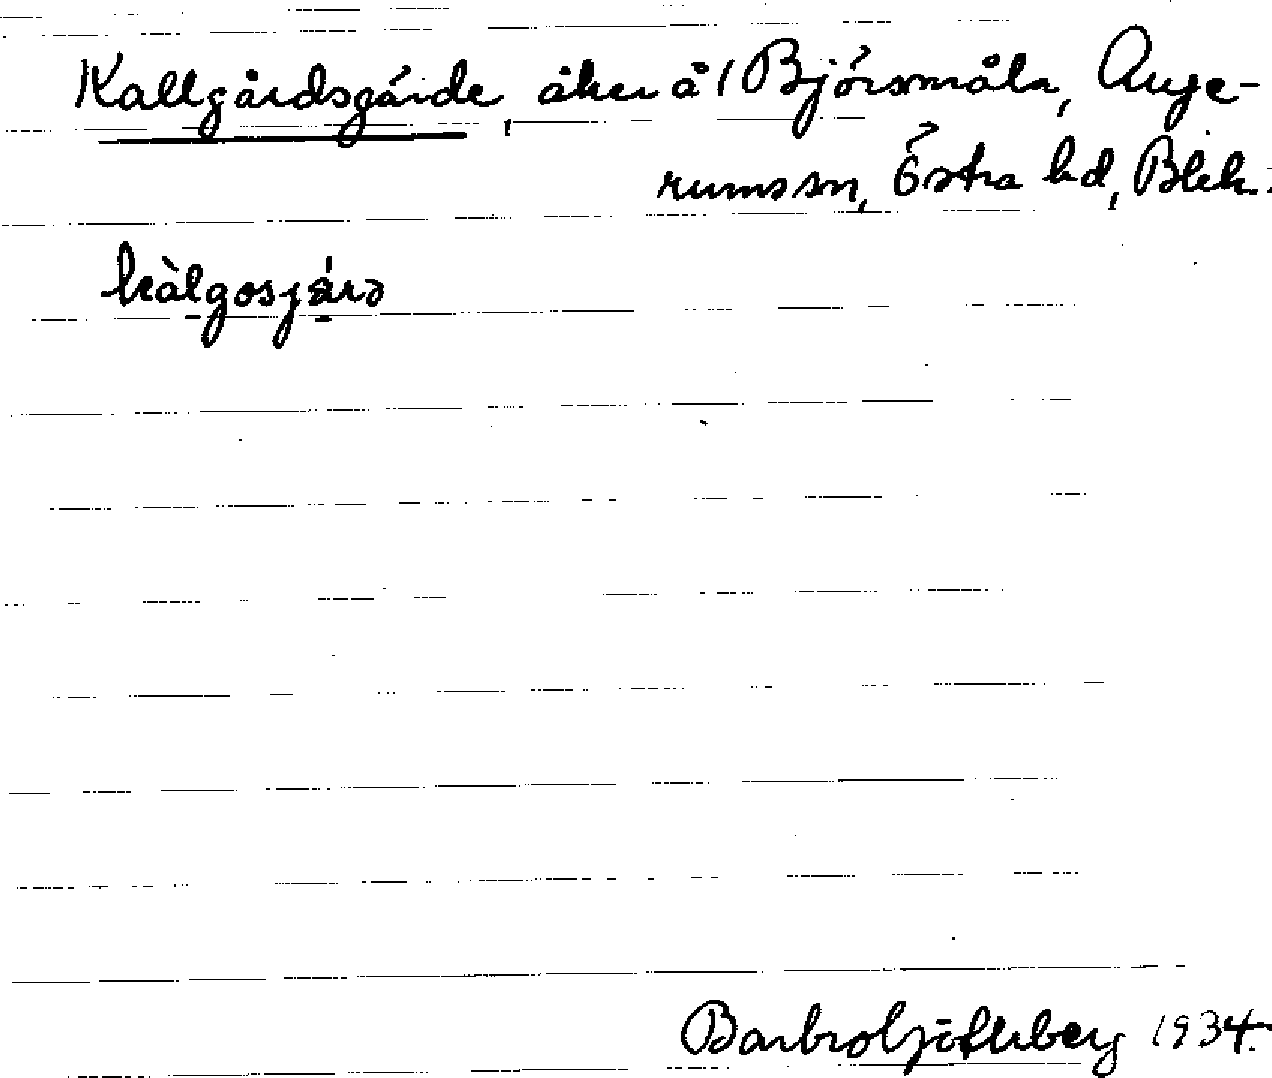 Kallgårdsgärde, åker å 1 Björsmåla, Auge-
rums sn, Östra hd, Blek.
kàlgosjárə
Barbro Ljöfberg 1934.